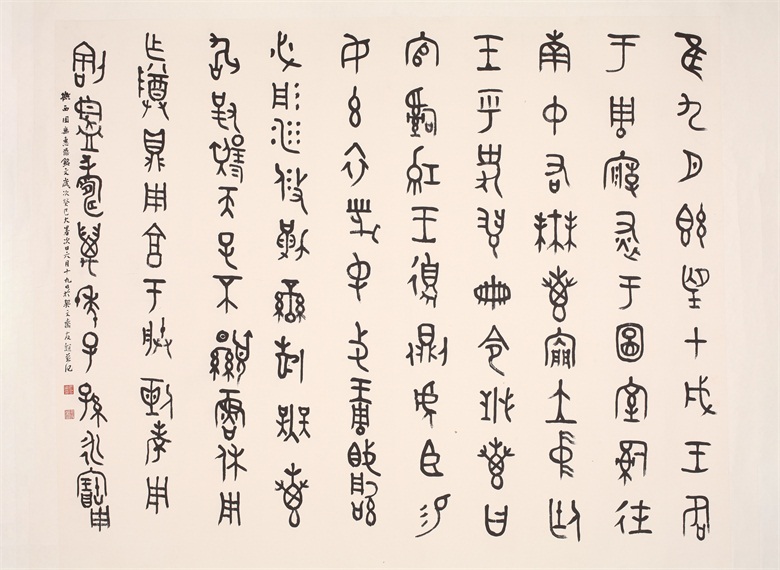 隹九月既望甲戌王各
于周廟述于圖室司徒
南中右無叀內門立中廷
王乎史翏冊令無叀曰
官司王側虎臣易
女玄衣黹屯戈琱
必彤沙攸勒鑾旂無叀
敢對揚天子不顯魯休用
乍尊鼎用享于剌考用
割眉壽萬年子孫永寶用
西周無惠鼎銘文歲次癸巳大暑次日六月十九日於